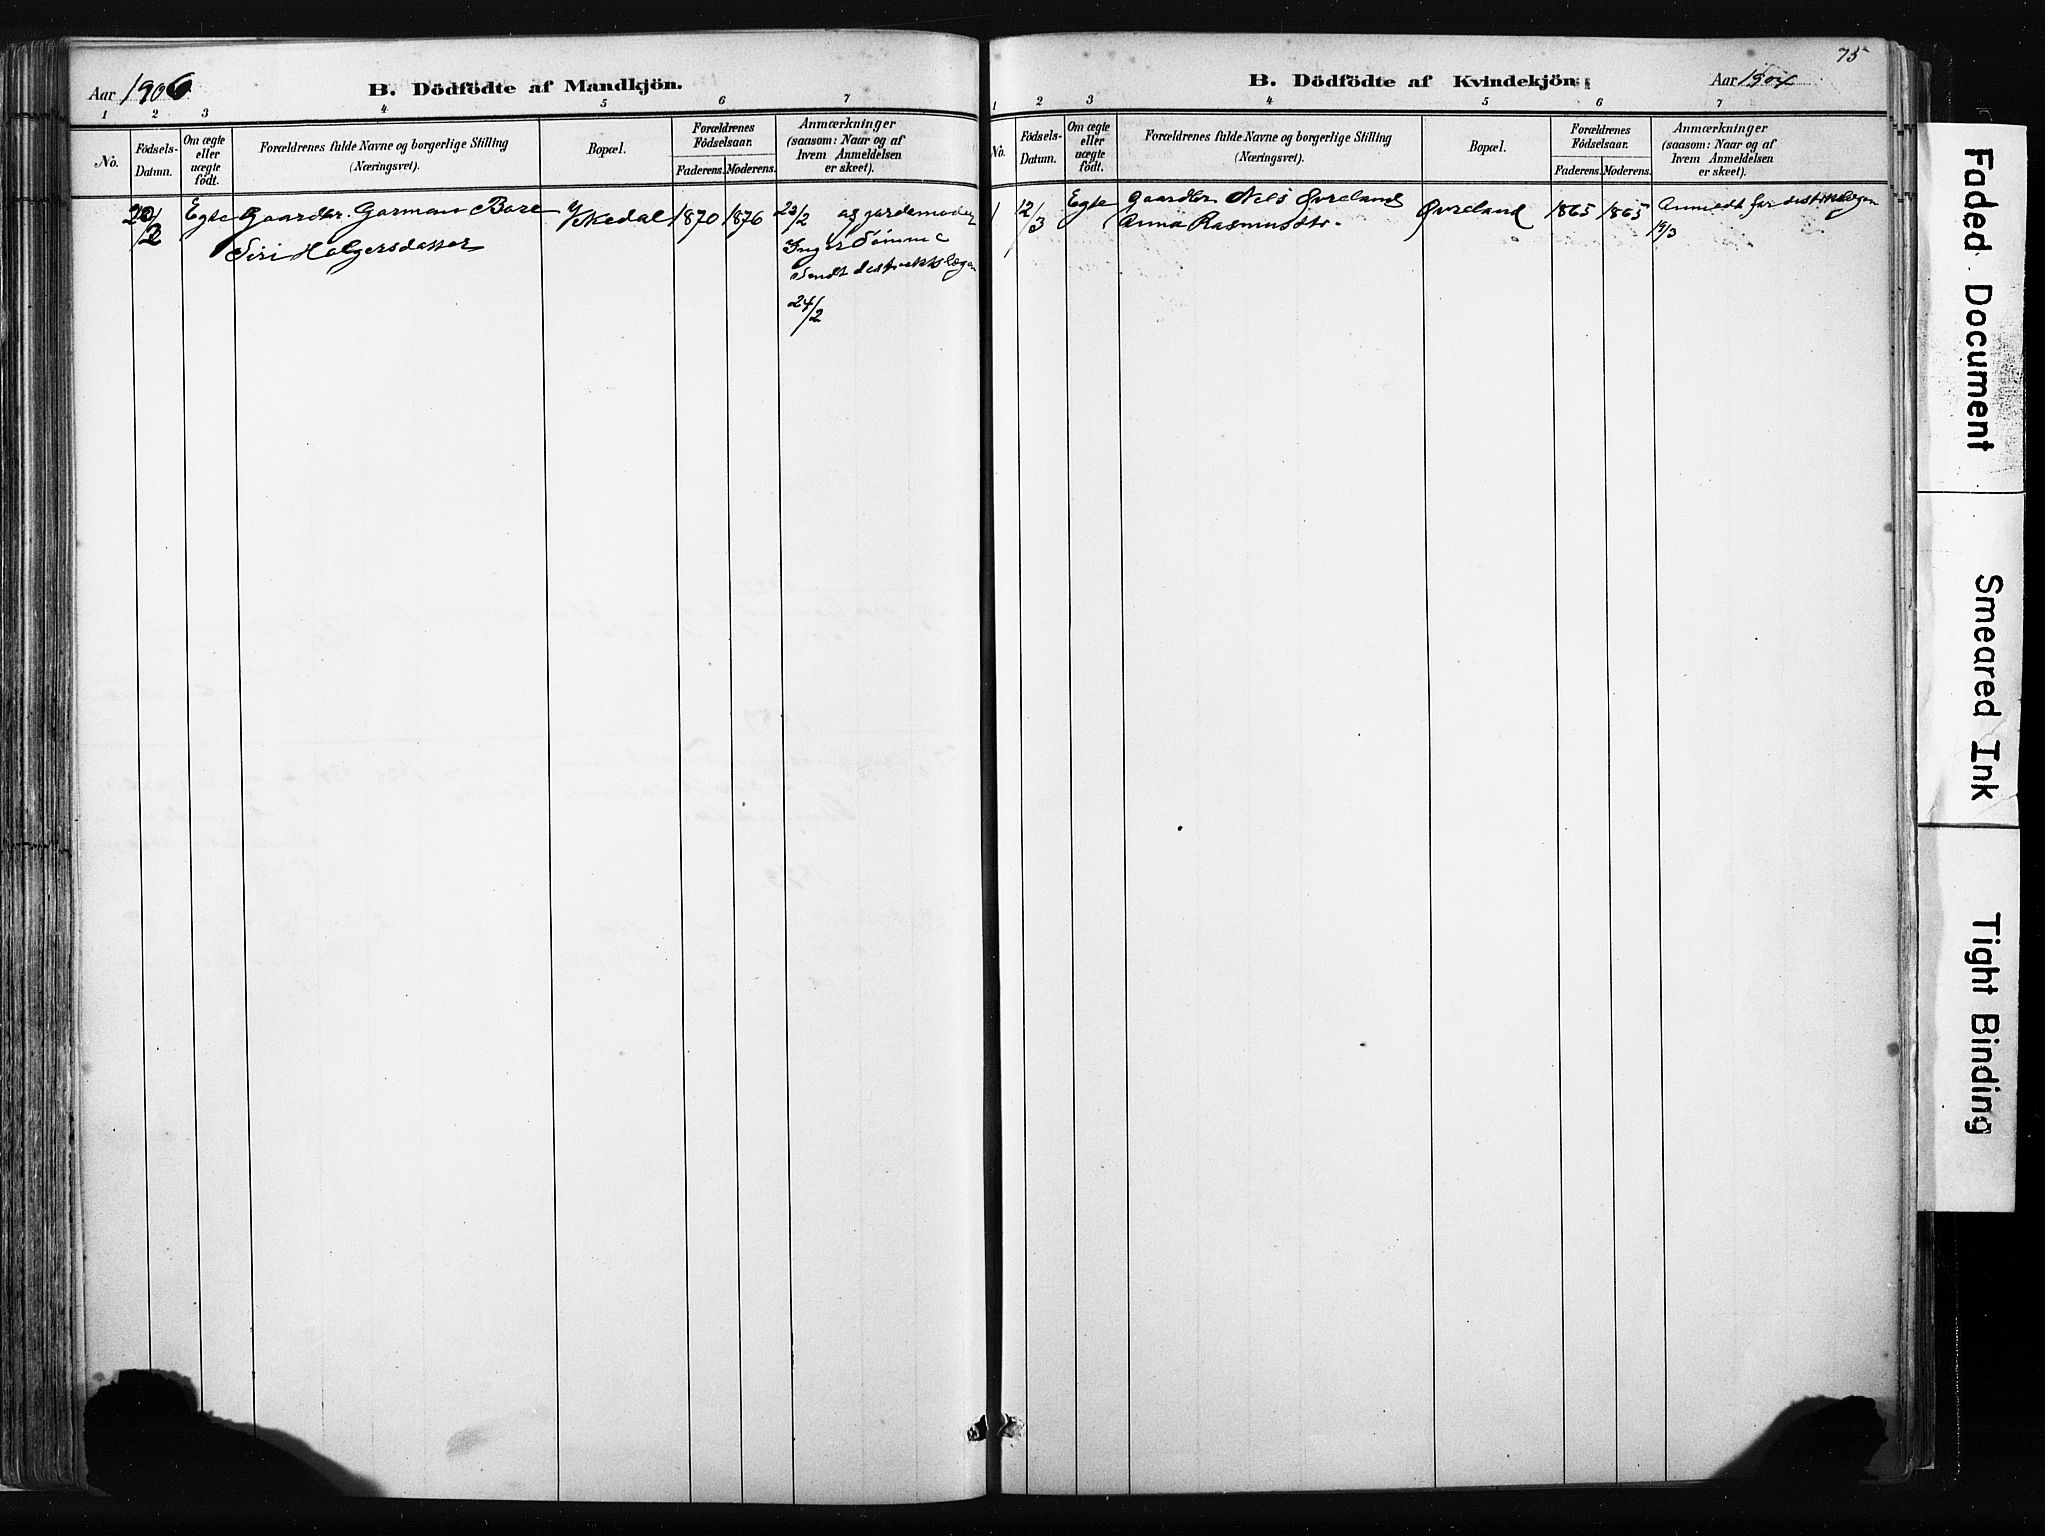 Aar 1906
B. Dödfödte af Mandkjön.
1 2 3 4 5 6 7
No.
Födsels-Datum.
Om ægte eller uægte födt.
Forældrenes fulde Navne og borgerlige Stilling (Næringsvei).
Bopæl.
Forældrenes Födselsaar.
Faderens. Moderens.
Anmærkninger (saasom: Naar og af hvem Anmeldelsen er skeet).
20/2 Egte Gaardbr. Garman Bore Y Skedal 1870 1876 23/2 ag jordemoder
Siri Holgersdatter Inger Sömme
Sendt distriktslægen
24/2
75
B. Dödfödte af Kvindekjön.
Aar 1904
1 2 3 4 5 6 7
No.
Födsels-Datum.
Om ægte eller uægte födt.
Forældrenes fulde Navne og borgerlige Stilling (Næringsvei).
Bopæl.
Forældrenes Födselsaar.
Faderens. Moderens.
Anmærkninger (saasom: Naar og af hvem Anmeldelsen er skeet).
1 12/3 Egte Gaardbr Nels Øvreland Øvreland 1865 1865 Anmeldt for
Anna Rasmusdtr. 19/3
Faded Document
Smeared Ink
Tight Binding